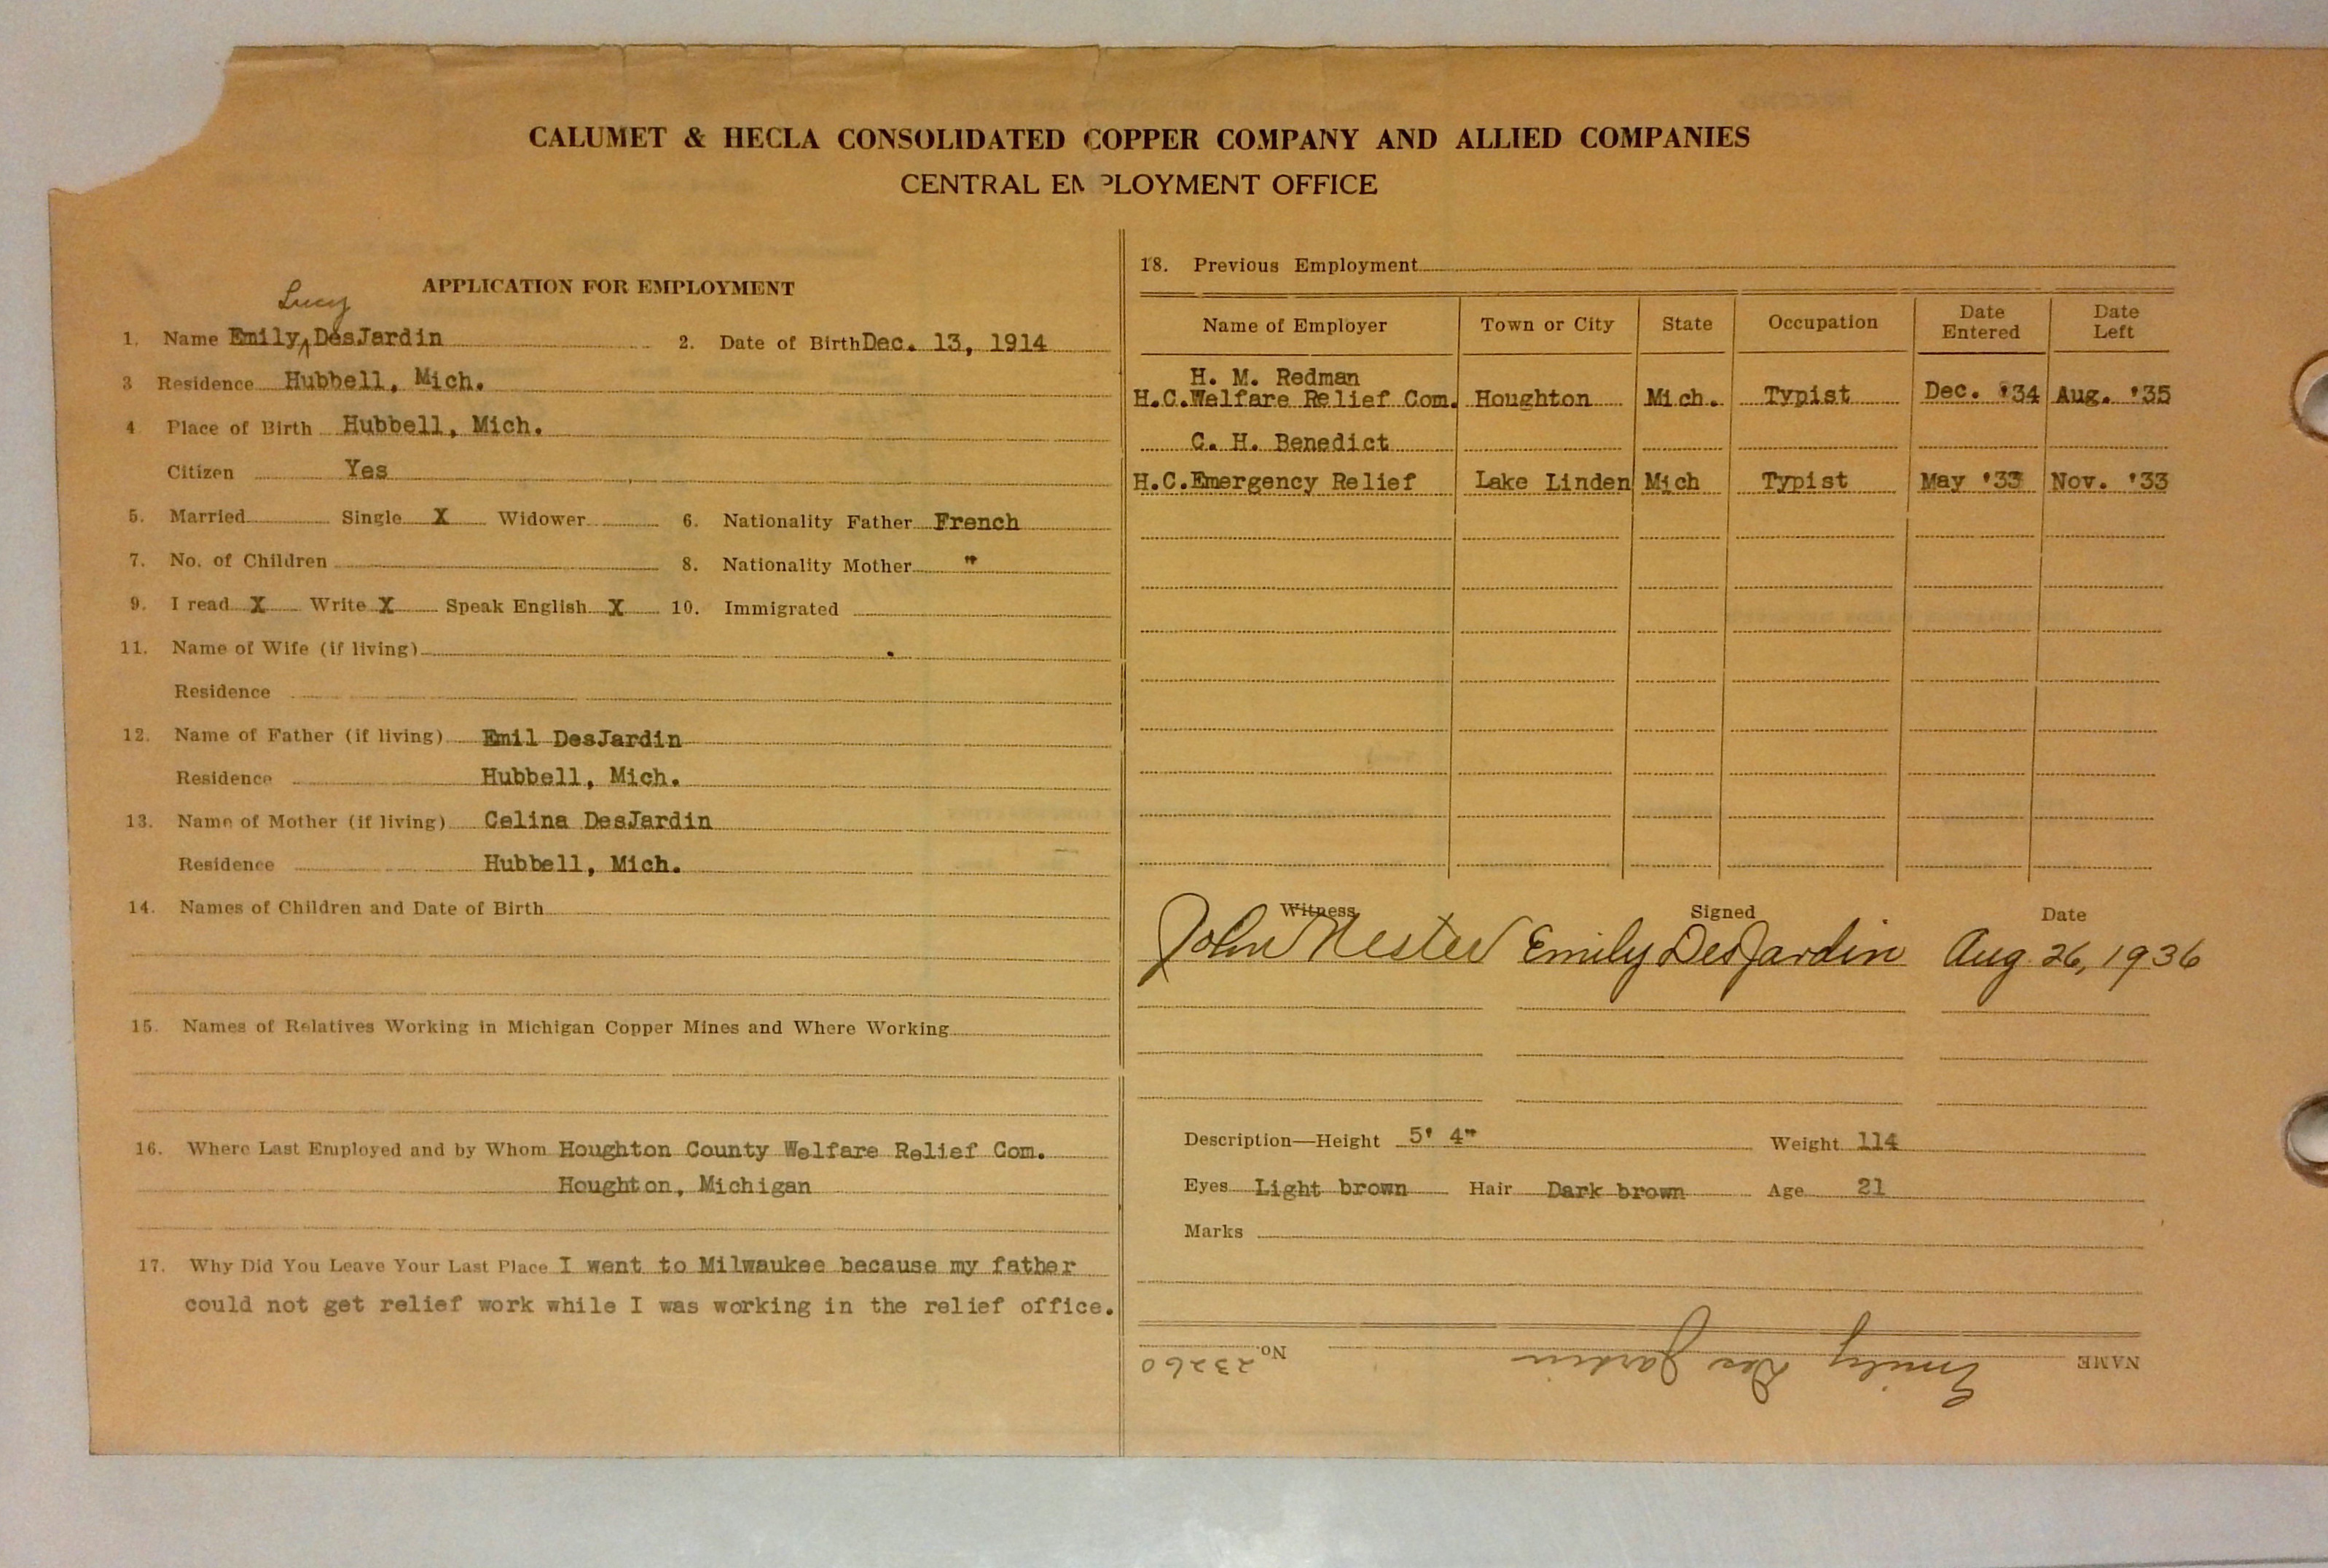 CALUMET & HECLA CONSOLIDATED COPPER COMPANY AND ALLIED COMPANIES
CENTRAL EMPLOYMENT OFFICE
APPLICATION FOR EMPLOYMENT
Lucy
1. Name Emily ^ DesJardin 2. Date of Birth Dec. 13, 1914
3 Residence Hubbell, Mich.
4 Place of Birth Hubbell, Mich.
Citizen Yes
5. Married Single X Widower 6. Nationality Father French
7. No. of Children 8. Nationality Mother "
9. I read X Write X Speak English X 10. Immigrated
11. Name of Wife (if living)
Residence
12. Name of Father (if living) Emil DesJardin
Residence Hubbell, Mich.
13. Name of Mother (if living) Celina DesJardin
Residence Hubbell, Mich.
14. Names of Children and Date of Birth
15. Names of Relatives Working in Michigan Copper Mines and Where Working
16. Where Last Employed and by Whom Houghton County Welfare Relief Com.
Houghton, Michigan
17. Why Did You Leave Your Last Place I went to Milwaukee because my father
could not get relief work while I was working in the relief office.
18. Previous Employment
Name of Employer Town or City State Occupation Date Entered Date Left
H. M. Redman
H.C.Welfare Relief Com. Houghton Mich. Typist Dec. '34 Aug. '35
C. H. Benedict
H.C.Emergency Relief Lake Linden Mich Typist May '33 Nov. '33
Witness Signed Date
John Nester Emily DesJardin Aug 26, 1936
Description—Height 5' 4" Weight 114
Eyes Light brown Hair Dark brown Age 21
Marks
NAME Emily Des Jardin No. 23260